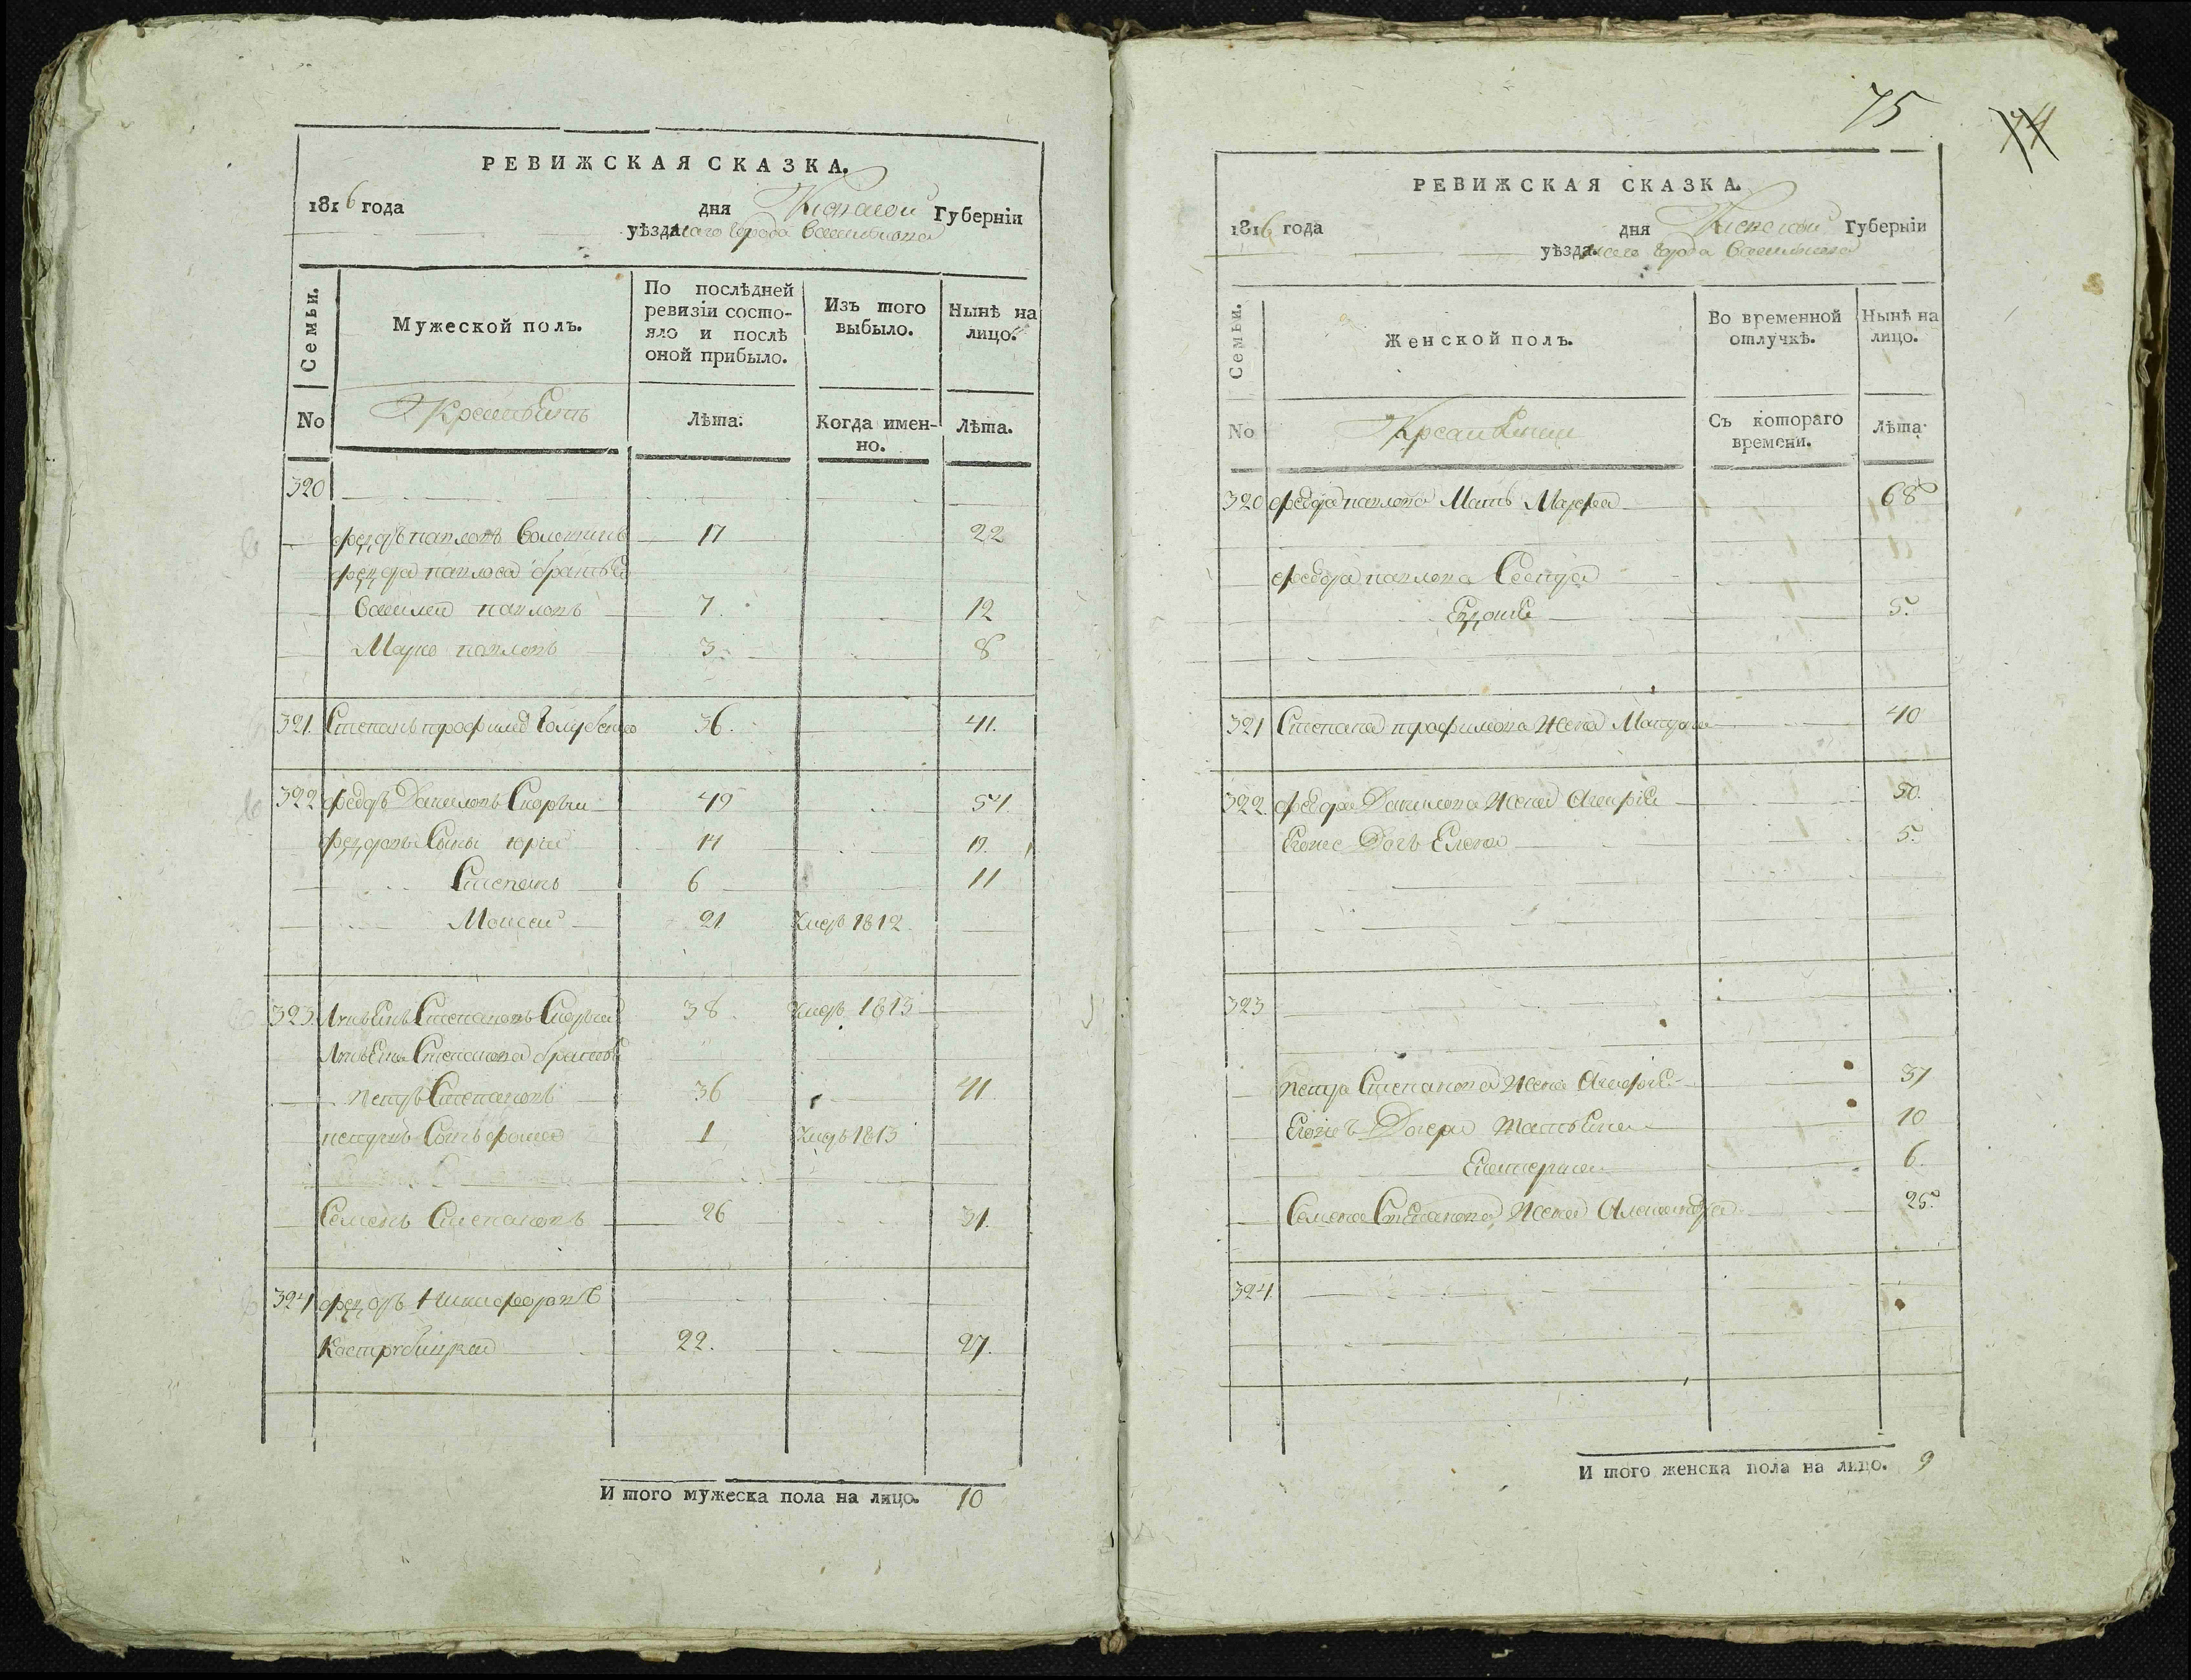 РЕВИЖСКАЯ СКАЗКА.
1816 года дня Кіевской Губерніи
уѣзда города
Семьи.
Мужеской полъ.
По послѣдней ревизіи состо-
яло и послѣ
оной прибыло.
Изъ того выбыло.
Нынѣ на лицо.
No
Лѣта.
Когда имен-
но.
Лѣта.
320
Федоръ Павловъ 17 22
Федора Павлова братья
Василей Павловъ 7. 12
Марко Павловъ 3. 8
321. Степанъ Трофимовъ 36. 41.
322 Федоръ Даниловъ Скорый 49 54.
Федоровы Сыны Юрій 14 19.
Степанъ 6 11
Моисей 21 умеръ 1812
323. Матвѣй Степановъ Скорый 38. умеръ 1813
Степанова братья
Петръ Степановъ 36 41
Петровъ Сынъ 1 умеръ 1813
Семенъ Степановъ 26 31.
324 Федоръ Никифоровъ
22. 27.
И того мужеска пола на лицо. 10
75
74
РЕВИЖСКАЯ СКАЗКА.
1816 года дня Кіевской Губерніи
уѣзда города
Семьи.
Женской полъ.
Во временной
отлучкѣ.
Нынѣ на
лицо.
No
Съ котораго
времени.
Лѣта.
320 Федора Павлова Мать Марфа 68
Федора Павлова Сестра
5.
321 Степана Трофимова Жена 40
322. Федора Данилова Жена Агафія 50.
Его же Дочь Елена 5.
323
Петра Степанова Жена Агафія 37
Его же Дочери 10
Екатерина 6.
Семена Степанова Жена Александра 25.
324.
И того женска пола на лицо. 9